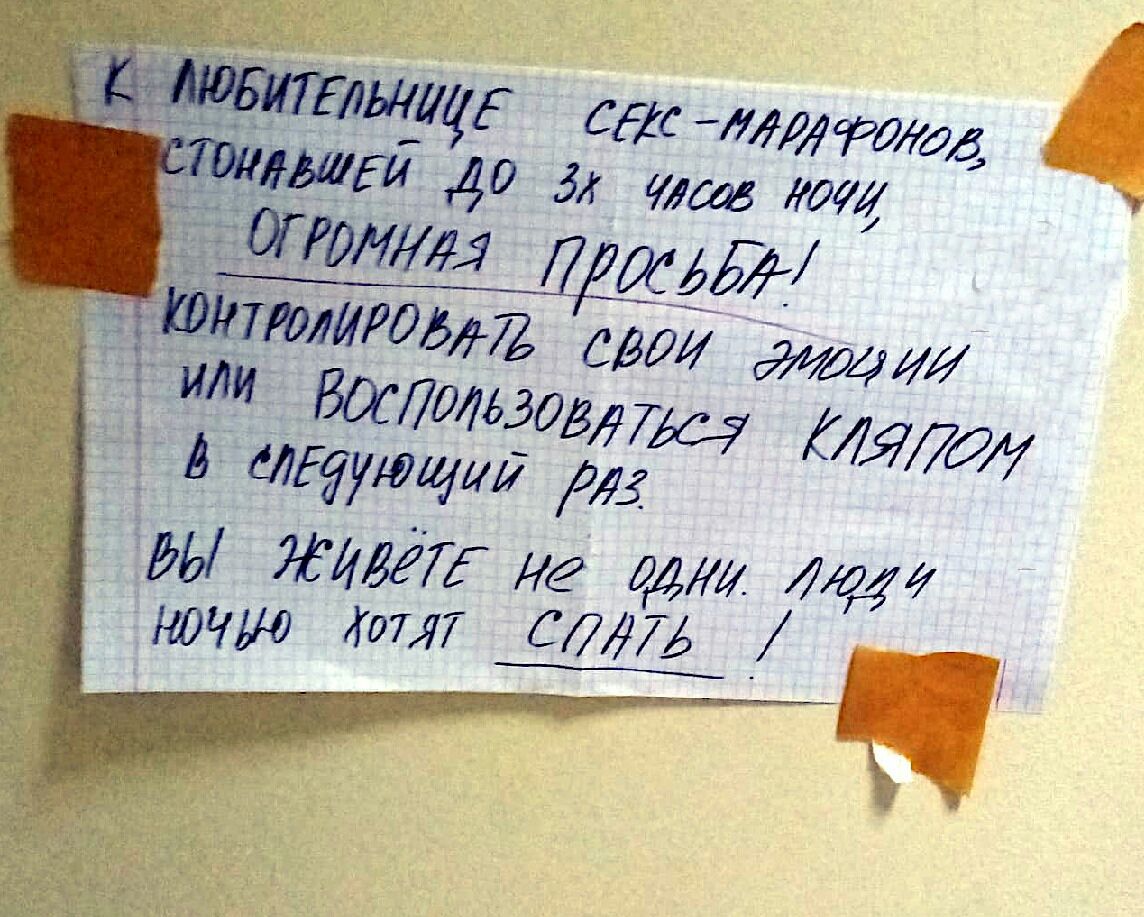 К ЛЮБИТЕЛЬНИЦЕ СЕКС-МАРАФОНОВ,
СТОНАВШЕЙ ДО 3х ЧАСОВ НОЧИ,
ОГРОМНАЯ ПРОСЬБА!
КОНТРОЛИРОВАТЬ СВОИ ЭМОЦИИ
ИЛИ ВОСПОЛЬЗОВАТЬСЯ КЛЯПОМ
В СЛЕДУЮЩИЙ РАЗ.
ВЫ ЖИВЁТЕ НЕ ОДНИ. ЛЮДИ
НОЧЬЮ ХОТЯТ СПАТЬ!